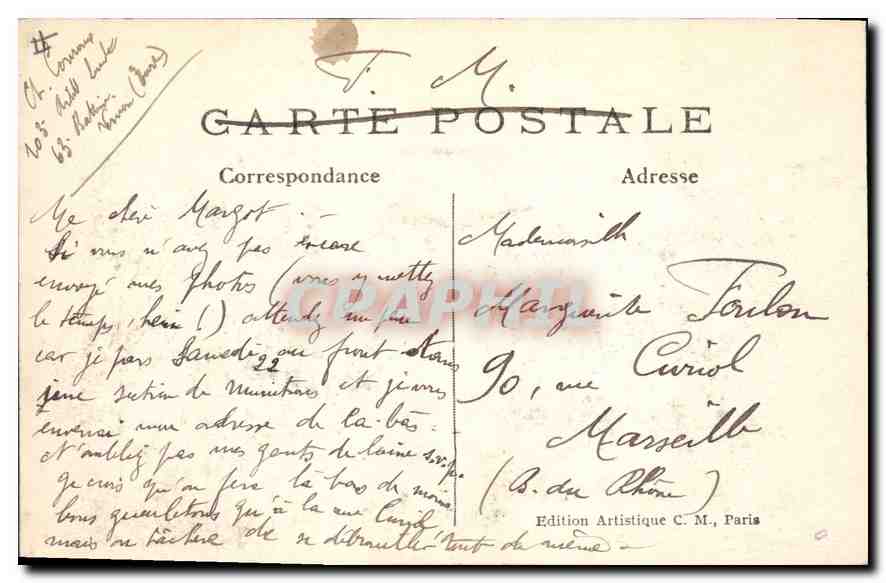 F. M.
CARTE POSTALE
Correspondance
Adresse
Ct. 
203e Artill Lourde
63e Batterie
Vernon (Eure)
Ma chère Margot. -
Si vous n'avez pas encore
envoyé mes photos (vous y mettez
le temps, hein!) attendez un peu
car je pars Samedi 22 au front dans
une section de munitions et je vous
enverrai mon adresse de là-bas -
N'oubliez pas mes gants de laine s.v.p.
Je crois qu'on fera là bas de moins
bons gueuletons qu'à la rue Curiol
mais on tâchera de se débrouiller tout de même -
Mademoiselle
Marguerite Toulon
90, rue Curiol
Marseille
(B. du Rhône)
Edition Artistique C. M., Paris
CPAPHIL